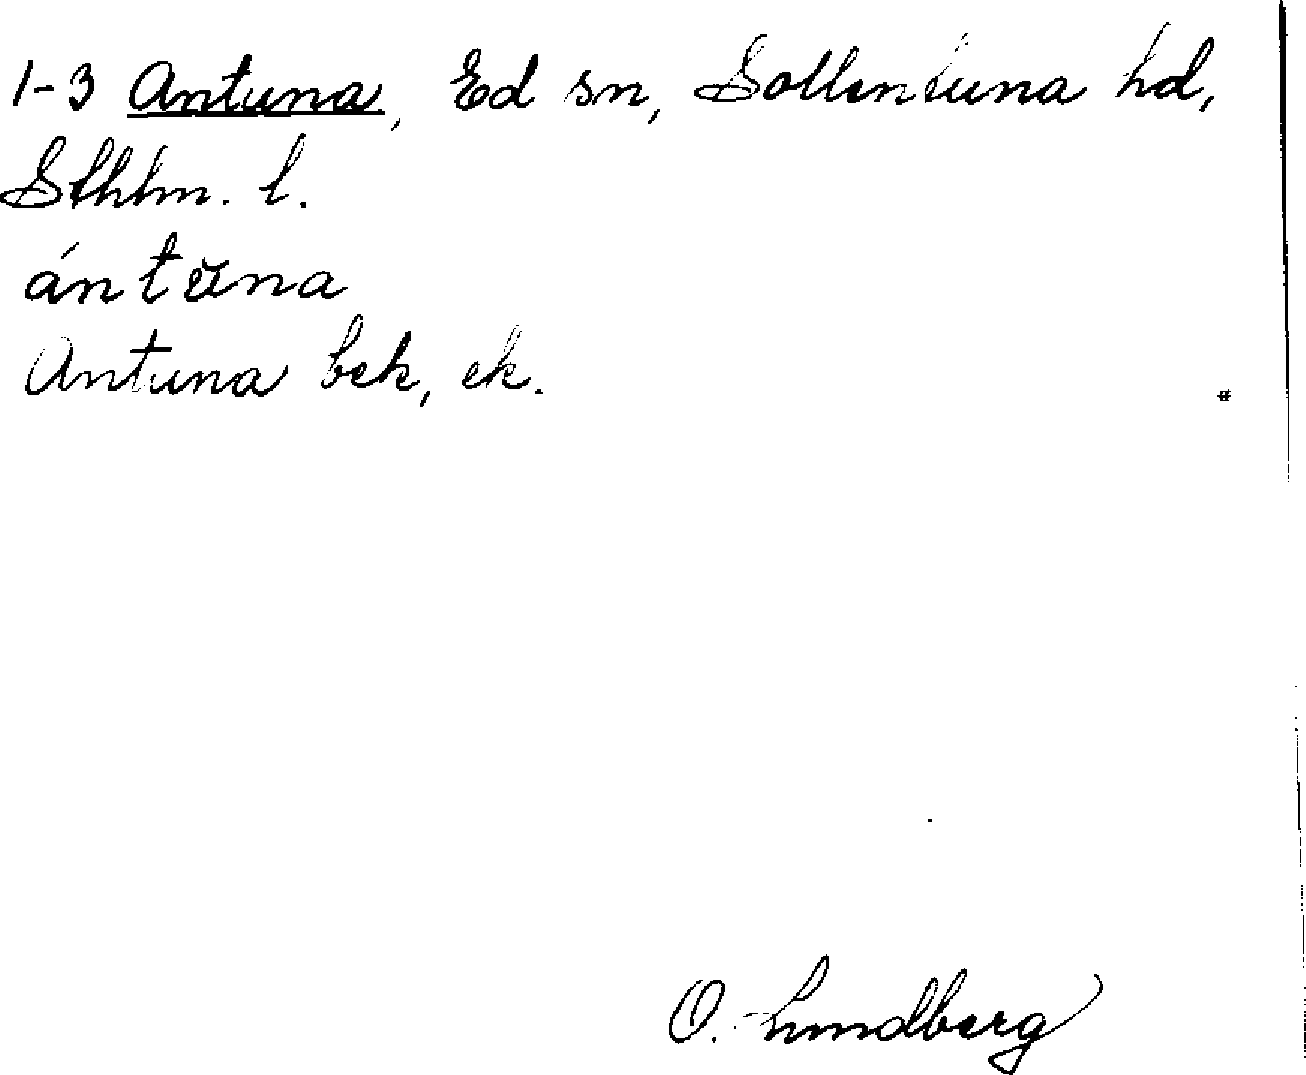 1-3 Antuna, Ed sn, Sollentuna hd,
Sthlm. l.
ántŭna
Antuna bek, ek.
O. Lundberg